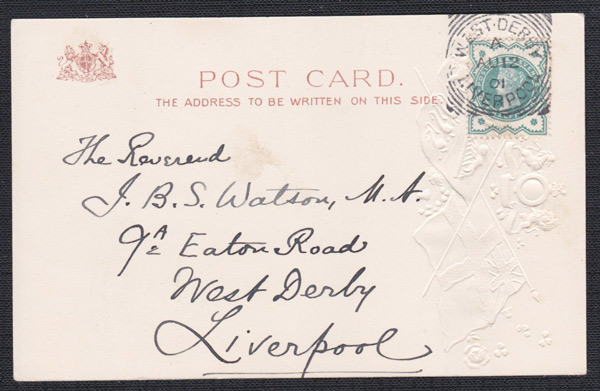 WEST·DERBY
A
AU 12
01
LIVERPOOL
POST CARD.
THE ADDRESS TO BE WRITTEN ON THIS SIDE.
10
The Reverend
J. B. S. Watson, M. A.
9A Eaton Road
West Derby
Liverpool